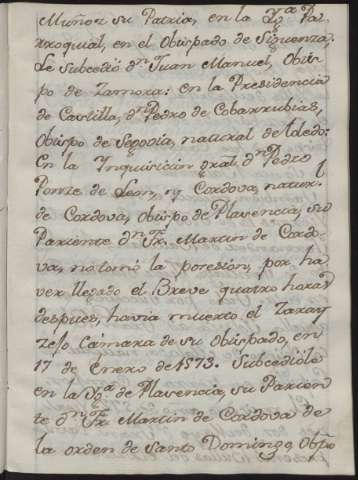 Muñoz su Patria, en la Ygª Par
rroquial, en el Obispado de Siguenza,
Le Subcedió dⁿ Juan Manuel, Obis
po de Zamora: en la Presidencia
de Castilla, dⁿ Pedro de Cobarrubias,
Obispo de Segovia, natural de toledo:
En la Ynquisicion gral dⁿ Pedro
Ponze de Leon, y Cordova, natural
de Cordova, obispo de Plasencia, su
Pariente dⁿ Fr. Martin de Cordo
va, no tomó la posesion, por ha
ver llegado el Breve quatro horas
despues, havia muerto el
Camara de su obispado, en
17 de Enero de 1573. Subcediole
en la Ygª de Plasencia, su Parien
te dⁿ Fr. Martin de Cordova de
la orden de Santo Domingo, Obpo